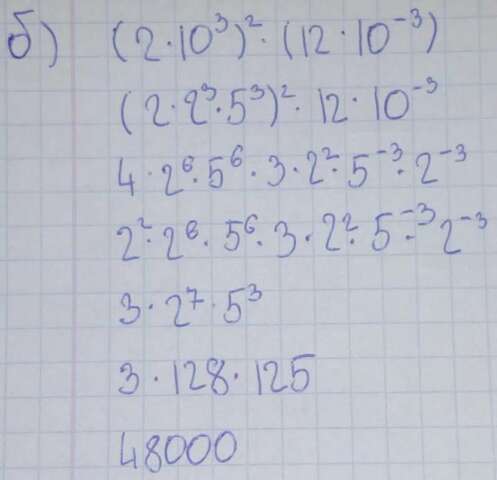 б) (2·10³)²·(12·10⁻³)
(2·2³·5³)²·12·10⁻³
4·2⁶·5⁶·3·2²·5⁻³·2⁻³
2²·2⁶·5⁶·3·2²·5⁻³·2⁻³
3·2⁷·5³
3·128·125
48000